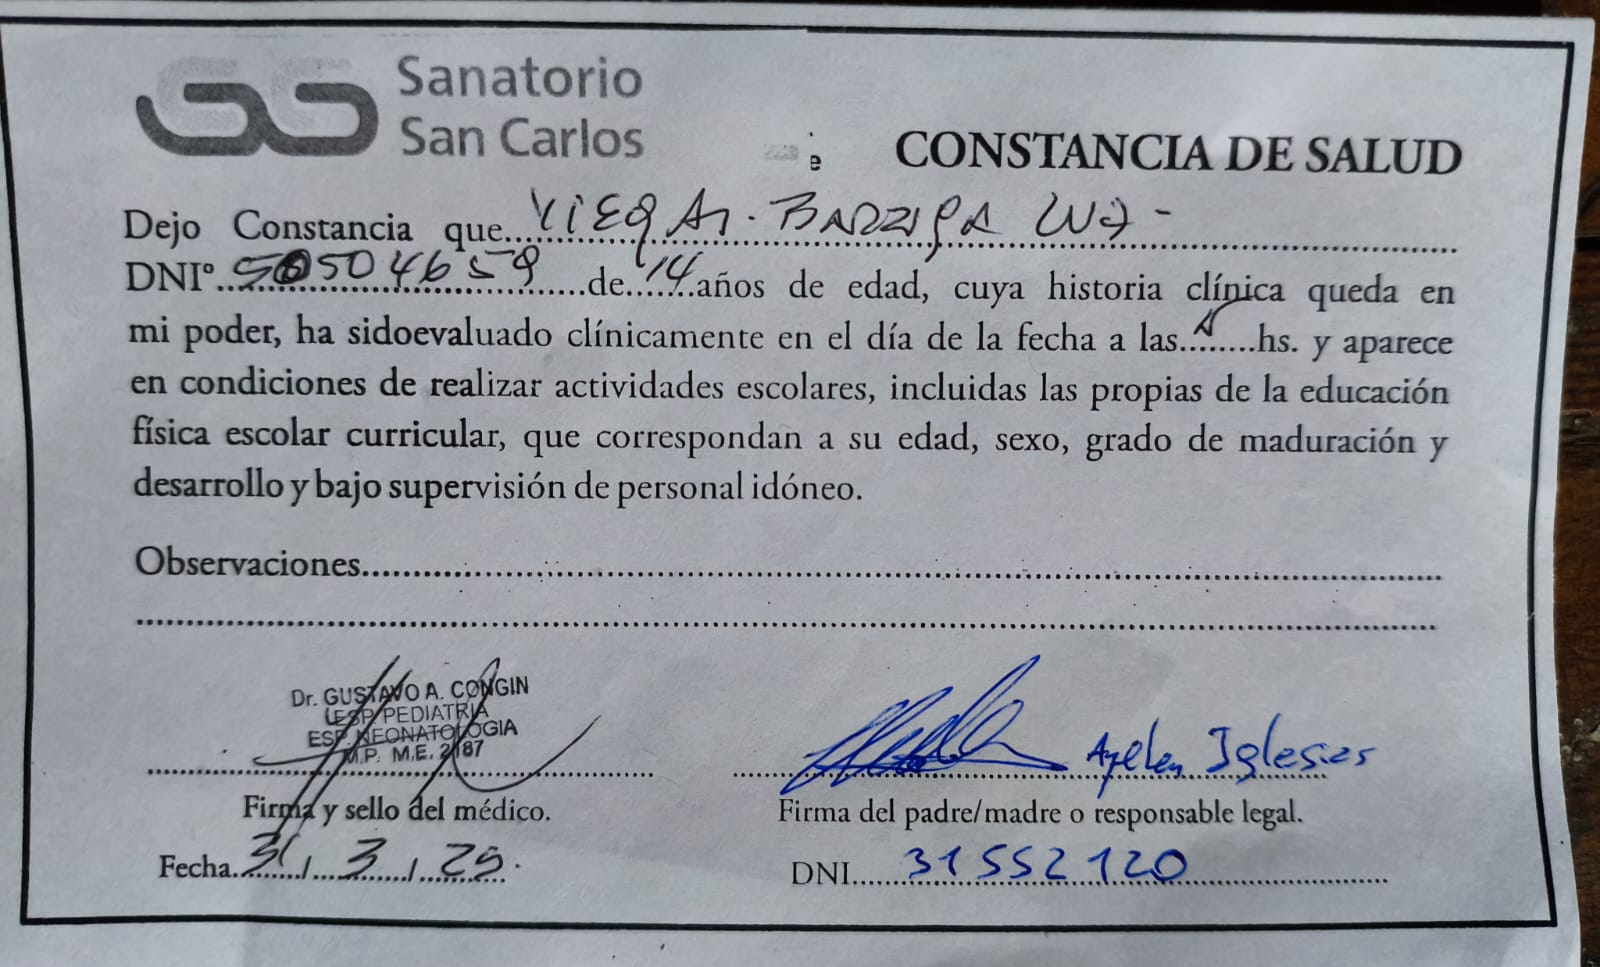 Sanatorio
San Carlos
CONSTANCIA DE SALUD
Dejo Constancia que
DNIº 50504659 de 14 años de edad, cuya historia clínica queda en
mi poder, ha sidoevaluado clínicamente en el día de la fecha a las........hs. y aparece
en condiciones de realizar actividades escolares, incluidas las propias de la educación
física escolar curricular, que correspondan a su edad, sexo, grado de maduración y
desarrollo y bajo supervisión de personal idóneo.
Observaciones
Dr. GUSTAVO A. CONGIN
ESP. PEDIATRIA
ESP. NEONATOLOGIA
M.P. M.E. 2187
Ayelen Iglesias
Firma y sello del médico.
Firma del padre/madre o responsable legal.
Fecha 31/3/25.
DNI 31552120